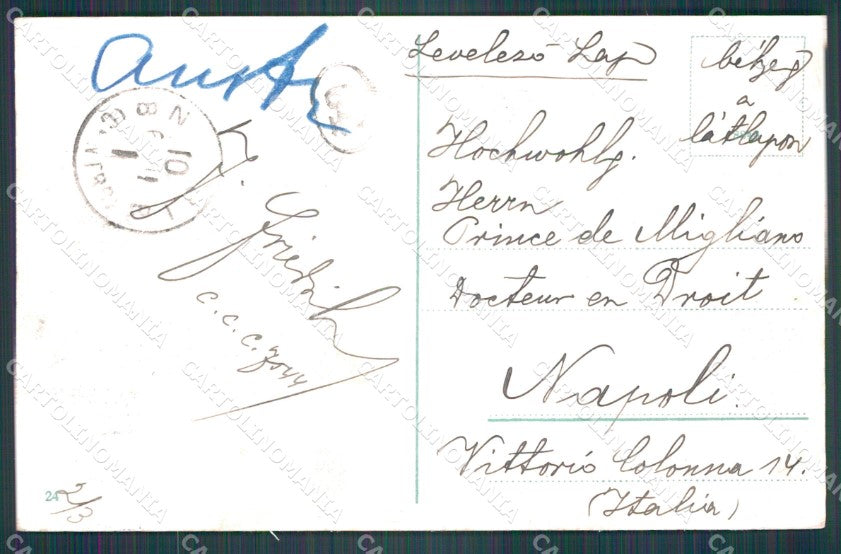 Austr
Levelező Lap
bélyeg
a
látlapon
Hochwohlg.
Herrn
Prince de Migliano
Docteur en Droit
Napoli.
Vittorio Colonna 14.
(Italia)
C.C.C. 7044
24
2/3
CARTOLINOMANIA